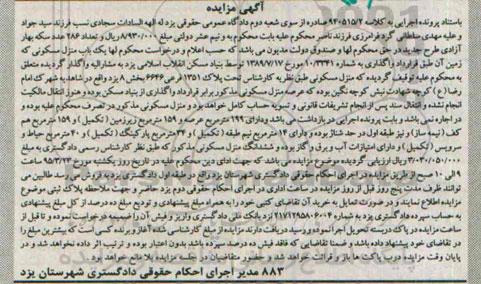 آگهی مزایده
باستناد پرونده اجرایی به کلاسه ۹۴۰۵۱۵/۲ صادره از سوی شعبه دوم دادگاه عمومی حقوقی یزد له الهه السادات سجادی نسب فرزند سید جواد
و علیه مهدی سلطانی گرد فرامرزی فرزند ناصر محکوم علیه بابت محکوم به ونیم عشر دولتی مبلغ ۸/۹۳۰/۰۰۰ ریال و تعداد ۲۸۶ عدد سکه بهار
آزادی طرح جدید در حق محکوم لها و صندوق دولت مدیون می باشد که حسب اعلام و درخواست محکوم لها یک باب منزل مسکونی که
زمین آن طبق قرارداد واگذاری به شماره ۱۰/۳۳۴۱ مورخ ۱۳۸۹/۷/۱۷ توسط بنیاد مسکن انقلاب اسلامی یزد به مشارالیه واگذار گردیده متعلق
به محکوم علیه توقیف گردیده که منزل مسکونی طبق نظریه کارشناس تحت پلاک ۱۳۵۱ فرعی ۶۶۴۶ بخش ۸ یزد واقع در شاهدیه شهرک امام
رضا (ع) کوچه شهادت نبش کوچه نگین بوده که عرصه منزل مسکونی مذکور برابر قرارداد واگذاری از بنیاد مسکن بوده و هنوز انتقال مالکیت
انجام نشده و انتقال سند پس از انجام تشریفات قانونی و تسویه حساب کامل خواهد بود و منزل مسکونی مذکور در تصرف محکوم علیه بوده و
در اجاره نمی باشد و بابت پرونده اجرایی در بازداشت می باشد ودارای ۱۹۹ مترمربع عرصه و ۱۵۹ مترمربع زیرزمین (تکمیل) و ۱۵۹ مترمربع هم
کف (نیمه ساز) و نیز طبقه اول در حد شناژ بوده و دارای ۱۴ مترمربع نیم طبقه (تکمیل) و ۳۴ مترمربع پارکینگ (تکمیل) و ۴۰ مترمربع حیاط و
سرویس (تکمیل) و دارای امتیازات آب و برق و گاز بوده و ششدانگ منزل مسکونی مذکور که طبق نظر کارشناس رسمی دادگستری به مبلغ
۳/۰۳۰/۰۵۰/۰۰۰ ریال ارزیابی گردیده موضوع مزایده می باشد که جهت ادای دین محکوم علیه در تاریخ روز یکشنبه مورخ ۹۵/۳/۲۳ ساعت
۹ الی ۱۰ صبح از طریق مزایده در اجرای احکام حقوقی دادگستری شهرستان یزد واقع در طبقه اول دادگستری یزد به فروش می رسد طالبین می
توانند ظرف مدت پنج روز قبل از روز مزایده در ساعات اداری در اجرای احکام حقوقی دوم یزد حاضر و جهت ملاحظه پلاک ثبتی موضوع
مزایده اطلاع نمایند و در صورت تمایل به خرید آن تقاضای کتبی خود را به همراه مبلغ پیشنهادی و تودیع مبلغ ده درصد از کل مبلغ پیشنهادی
به حساب سپرده دادگستری یزد به شماره ۲۱۷۱۲۹۵۸۰۶۰۰۴ نزد بانک ملی دادگستری واریز و فیش آن را ضمیمه درخواست نموده و تا قبل از
ساعت مزایده در پاک دربسته تحویل اجرا نموده و رسید دریافت دارند مزایده از مبلغ کارشناسی شده آغاز و برنده کسی است که بیشترین مبلغ را
در تقاضای خود پیشنهاد داده باشد و ضمنا تقاضایی که فاقد فیش ده درصد سپرده باشد بدون اعتبار بوده و ترتیب اثر داده نخواهد شد و در
پایان وقت مزایده درب پاکت ها باز و قرائت خواهد شد و حضور متقاضیان در جلسه مزایده بلا مانع خواهد بود.
۸۸۳ مدیر اجرای احکام حقوقی دادگستری شهرستان یزد